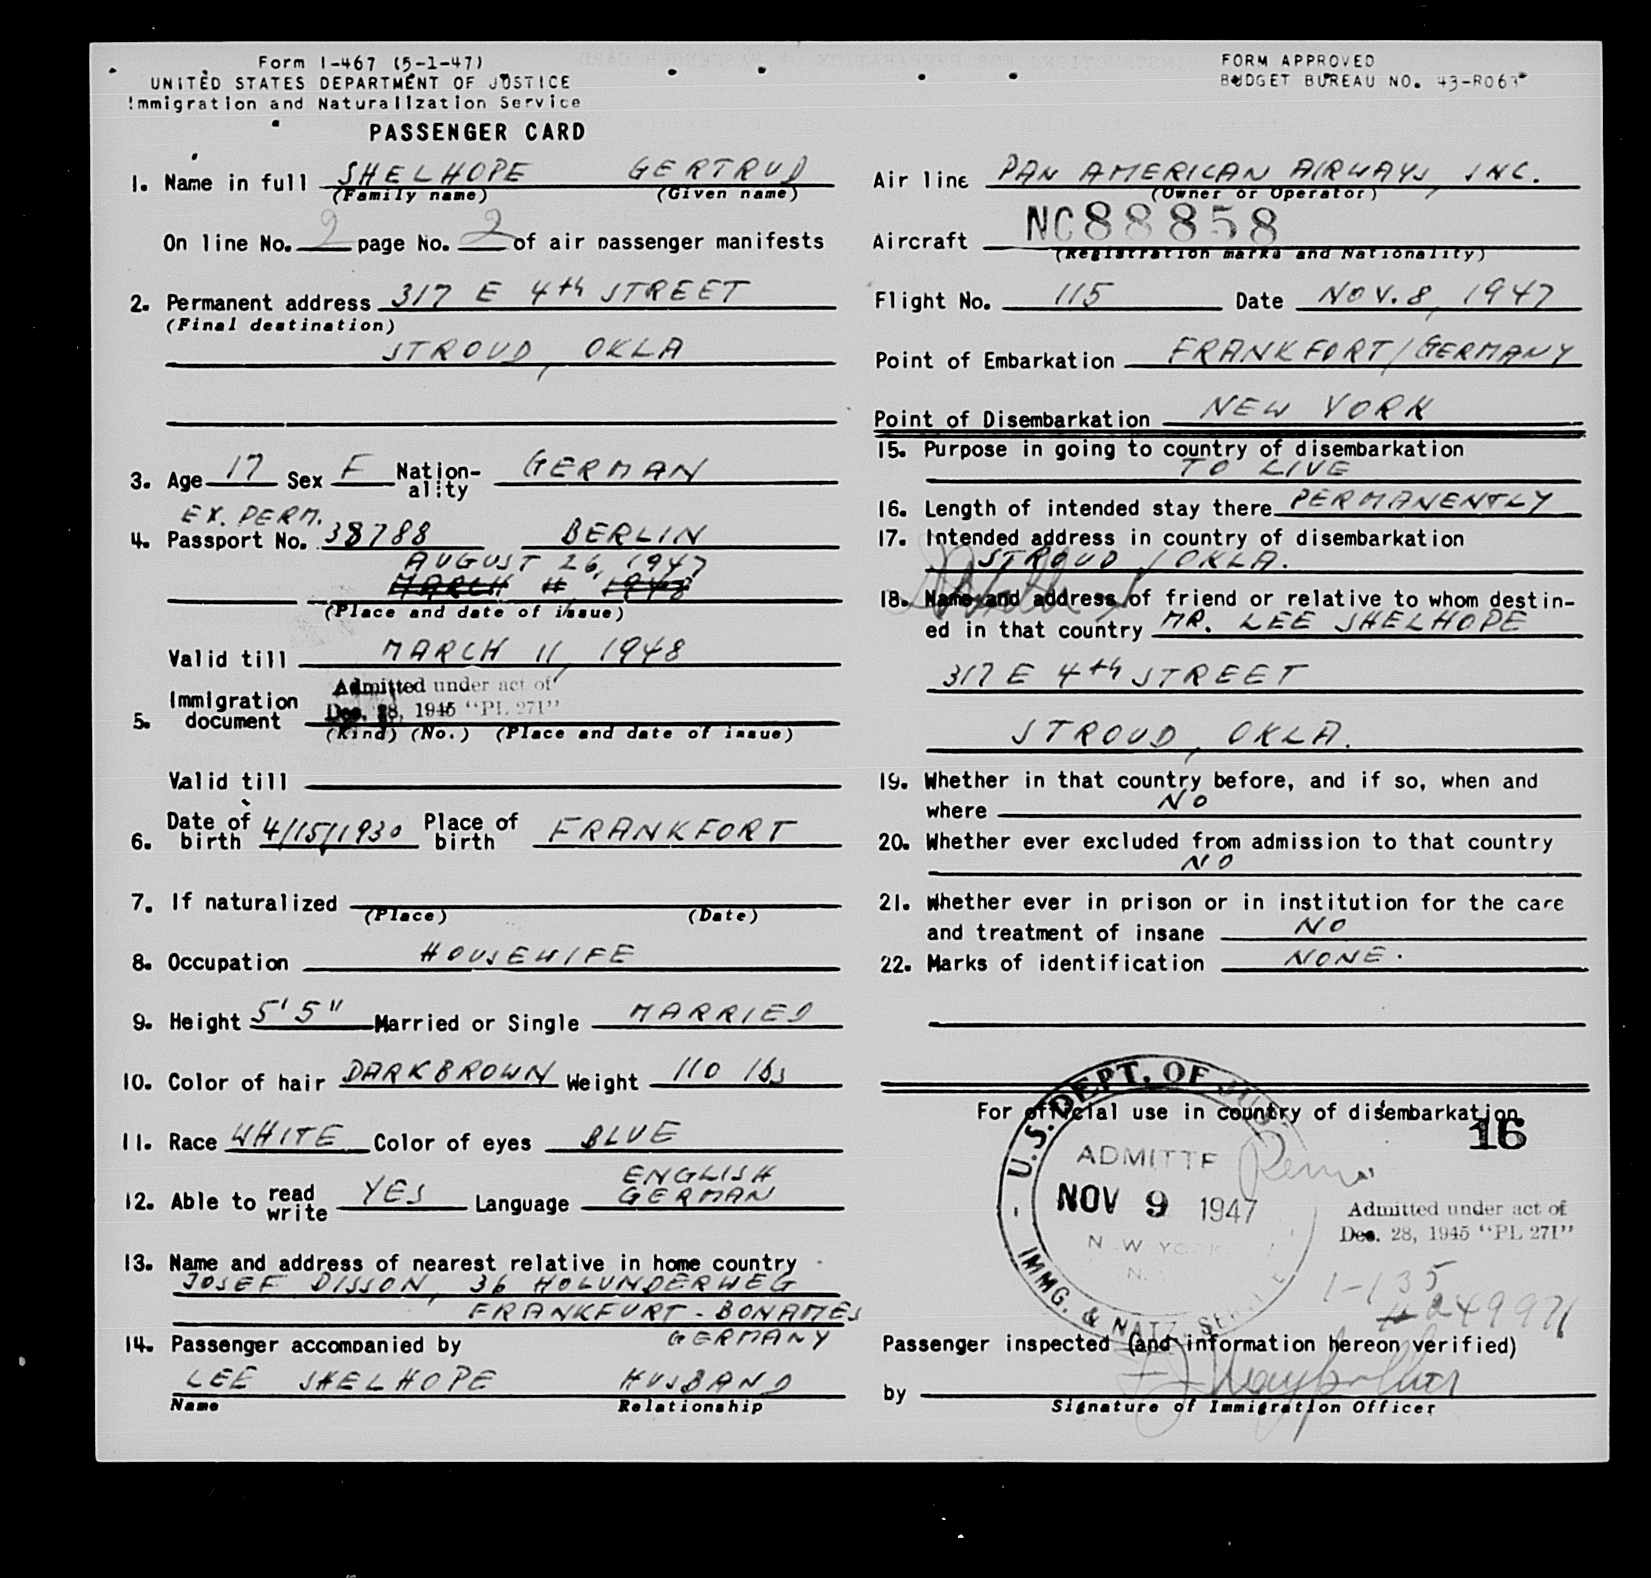 Form I-467 (5-1-47)
UNITED STATES DEPARTMENT OF JUSTICE
Immigration and Naturalization Service
PASSENGER CARD
FORM APPROVED
BUDGET BUREAU NO. 43-R063
1. Name in full SHELHOPE GERTRUD
(Family name) (Given name)
On line No. 2 page No. 2 of air passenger manifests
2. Permanent address 317 E 4th STREET
(Final destination)
STROUD, OKLA
3. Age 17 Sex F Nation-ality GERMAN
EX. PERM.
4. Passport No. 38788 BERLIN
AUGUST 26, 1947
MARCH 11 1948
(Place and date of issue)
Valid till MARCH 11, 1948
Admitted under act of
5. Immigration document Dec. 28, 1945 "PL 271"
(Kind) (No.) (Place and date of issue)
Valid till
6. Date of birth 4/15/1930 Place of birth FRANKFORT
7. If naturalized
(Place) (Date)
8. Occupation HOUSEWIFE
9. Height 5'5" Married or Single MARRIED
10. Color of hair DARKBROWN Weight 110 lbs
11. Race WHITE Color of eyes BLUE
12. Able to read write YES Language ENGLISH GERMAN
13. Name and address of nearest relative in home country
JOSEF DISSON, 36 HOLUNDERWEG
FRANKFURT-BONAMES
GERMANY
14. Passenger accompanied by
LEE SHELHOPE HUSBAND
Name Relationship
Air line PAN AMERICAN AIRWAYS, INC.
(Owner or Operator)
Aircraft NC88858
(Registration marks and Nationality)
Flight No. 115 Date NOV. 8, 1947
Point of Embarkation FRANKFORT/GERMANY
Point of Disembarkation NEW YORK
15. Purpose in going to country of disembarkation
TO LIVE
16. Length of intended stay there PERMANENTLY
17. Intended address in country of disembarkation
STROUD, OKLA.
18. Name and address of friend or relative to whom destin-
ed in that country MR. LEE SHELHOPE
317 E 4th STREET
STROUD, OKLA.
19. Whether in that country before, and if so, when and
where NO
20. Whether ever excluded from admission to that country
NO
21. Whether ever in prison or in institution for the care
and treatment of insane NO
22. Marks of identification NONE.
For official use in country of disembarkation
16
U.S. DEPT. OF JUS
ADMITTE
NOV 9 1947
IMMG. & NATZ. SER
Admitted under act of
Dec. 28, 1945 "PL 271"
1-135
Passenger inspected (and information hereon verified)
by
Signature of Immigration Officer